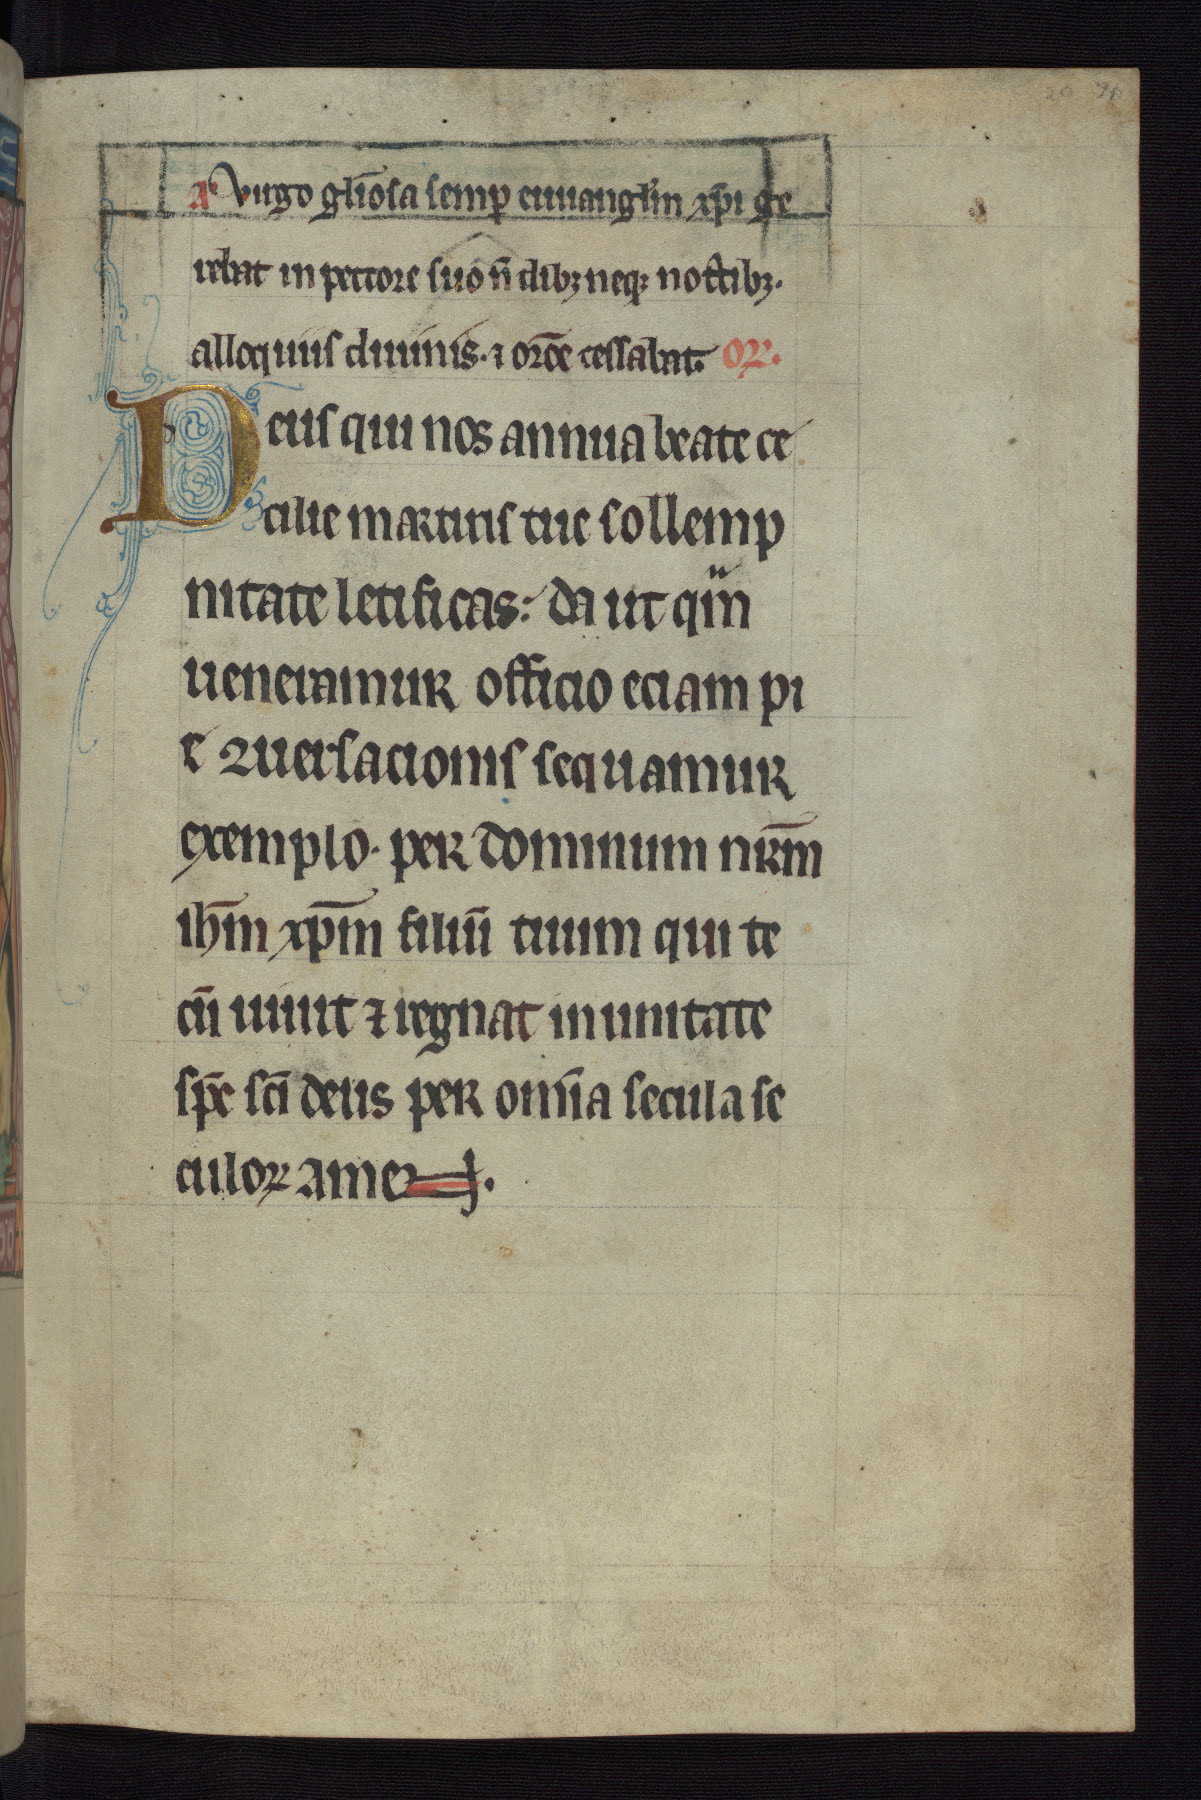 A Uirgo gl̄iosa semꝑ euuangl̄m xp̄i ge
rebat in pectore suo n̄ dibꝫ neqꝫ noctibꝫ.
alloquiis diuinis. ⁊ or̄oe cessabat. Oꝝ.
Deus qui nos annua beate ce
cilie martiris tue sollemp
nitate letificas: da ut qm̄
ueneramur officio eciam pi
e ꝯuersacionis sequamur
exemplo. per dominum nr̄m
ih̄m xp̄m filiū tuum qui te
cū uiuit ⁊ regnat in unitate
sp̄c sc̄i deus per omīa secula se
culoꝝ amen.